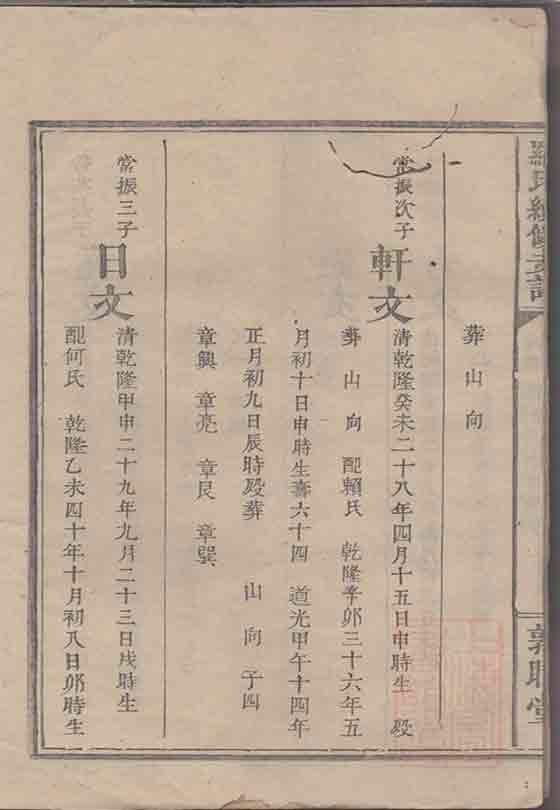 羅氏續修支譜
敦睦堂
葬山向
常振次子
軒文
清乾隆癸未二十八年四月十五日申時生 殁
葬山向 配賴氏 乾隆辛卯三十六年五
月初十日申時生壽六十四 道光甲午十四年
正月初九日辰時殁葬 山向子四
章興 章亮 章艮 章巽
常振三子
日文
清乾隆甲申二十九年九月二十三日戌時生
配何氏 乾隆乙未四十年十月初八日卯時生